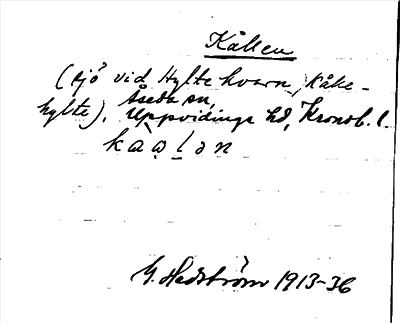 Kållen
(sjö vid Hylte kvarn, Kåke-
hylte), Åseda sn,
Uppvidinge hd, Kronob. l.
G. Hedström 1913-36